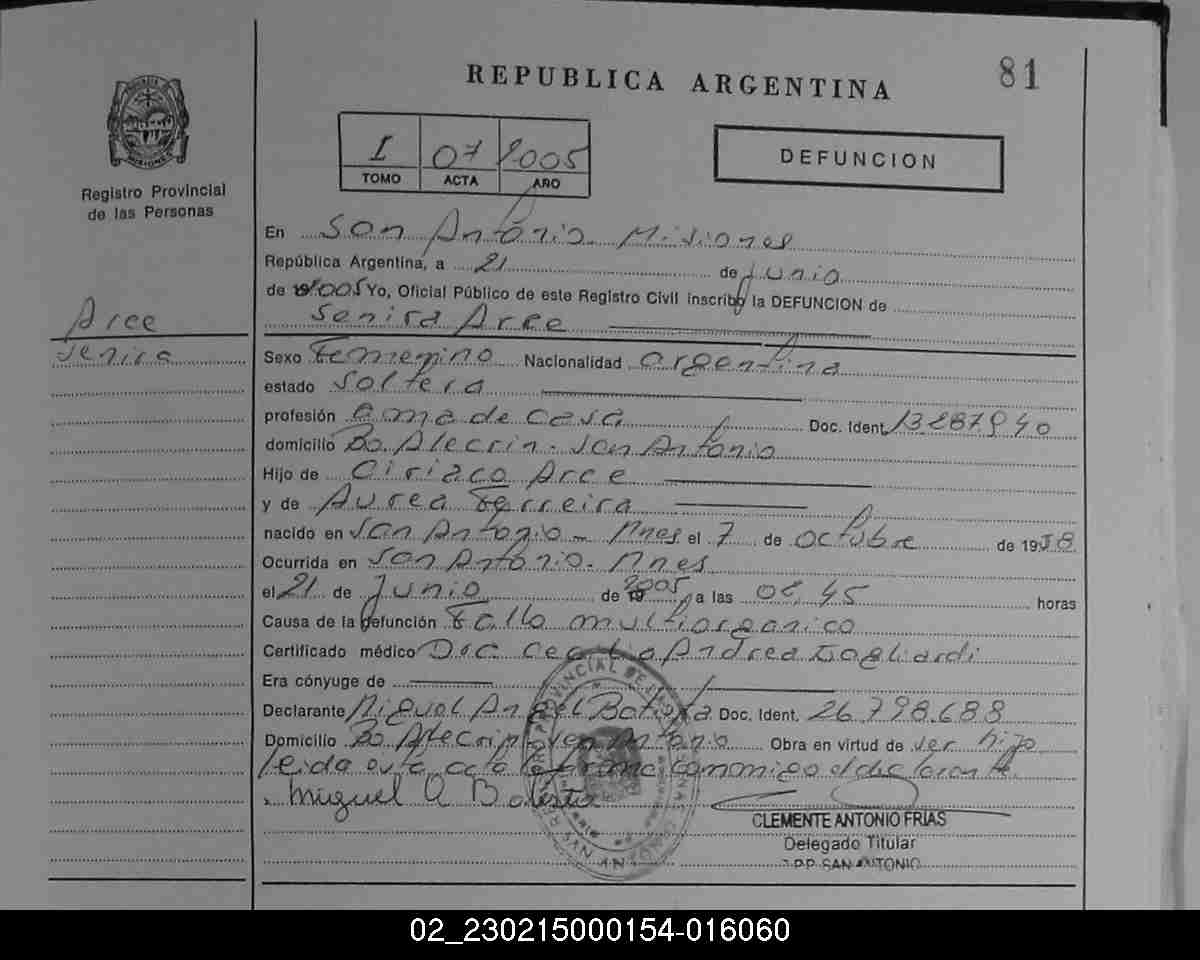 REPUBLICA ARGENTINA
81
Registro Provincial
de las Personas
I 07 2005
TOMO ACTA AÑO
DEFUNCION
En San Antonio Misiones
República Argentina, a 21 de Junio
de 2005 Yo, Oficial Público de este Registro Civil inscribo la DEFUNCION de
Senira Arce
Arce
Senira
Sexo Femenino Nacionalidad argentina
estado Soltera
profesión ama de casa Doc. Ident. 13287940
domicilio Bo. Alecrin - San Antonio
Hijo de Ciriaco Arce
y de Aurea Ferreira
nacido en San Antonio - Mnes el 7 de Octubre de 1958
Ocurrida en San Antonio - Mnes
el 21 de Junio de 2005 a las 08,45 horas
Causa de la defunción Fallo multiorganico
Certificado médico Dra. Cecilia Andrea Gagliardi
Era cónyuge de
Declarante Miguel Angel Batista Doc. Ident. 26.798.688
Domicilio Bo Alecrin San Antonio Obra en virtud de ser hijo
leida esta acta la firma conmigo el declarante.
Miguel A Batista
CLEMENTE ANTONIO FRIAS
Delegado Titular
SAN ANTONIO
02_230215000154-016060